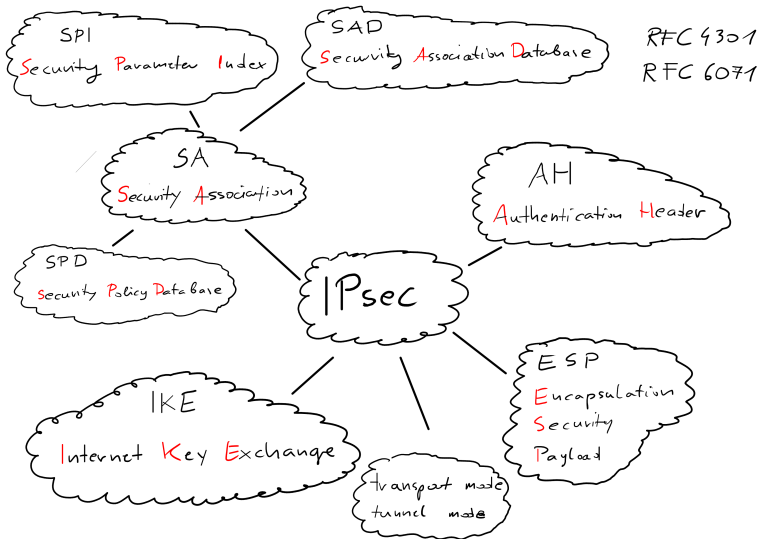 SPI
Security Parameter Index
SAD
Security Association Database
RFC 4301
RFC 6071
SA
Security Association
AH
Authentication Header
SPD
Security Policy Database
IPsec
ESP
Encapsulation
Security
Payload
IKE
Internet Key Exchange
transport mode
tunnel mode